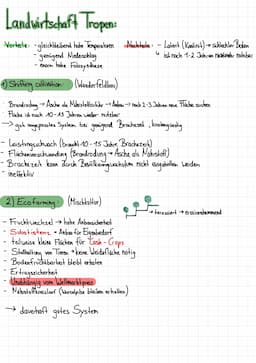 Landwirtschaft Tropen:
Vorteile: - gleichbleibend hohe Temperaturen
- genügend Niederschlag
- enorm hohe Fotosynthese
Nachteile: - Laterit (Kaolinit) → schlechter Boden
ist nach 1-2 Jahren nicht mehr nutzbar
1) Shifting cultivation (Wanderfeldbau)
- Brandrodung → Asche als Nährstoffstütze → Anbau → nach 2-3 Jahren neue Fläche suchen
Fläche ist nach 10-15 Jahren wieder nutzbar
→ gut angepasstes System bei genügend Brachezeit,
- Leistungsschwach (braucht 10-15 Jahre Brachezeit)
- Flächenverschwendung (Brandrodung → Asche als Nährstoff)
- Brachezeit kann durch Bevölkerungswachstum nicht eingehalten werden
- ineffektiv
2) Ecofarming: (Mischkultur)
→ terrassiert → erosionshemmend
- Fruchtwechsel → hohe Anbausicherheit
- Subsistenz + Anbau für Eigenbedarf
- teilweise kleine Flächen für Cash-Crops
- Stallhaltung von Tieren → keine Weidefläche nötig
- Bodenfruchtbarkeit bleibt erhalten
- Ertragssicherheit
- Unabhängig vom Weltmarktpreis
- Nährstoffkreislauf (Mykorrhiza bleiben erhalten)
→ dauerhaft gutes System